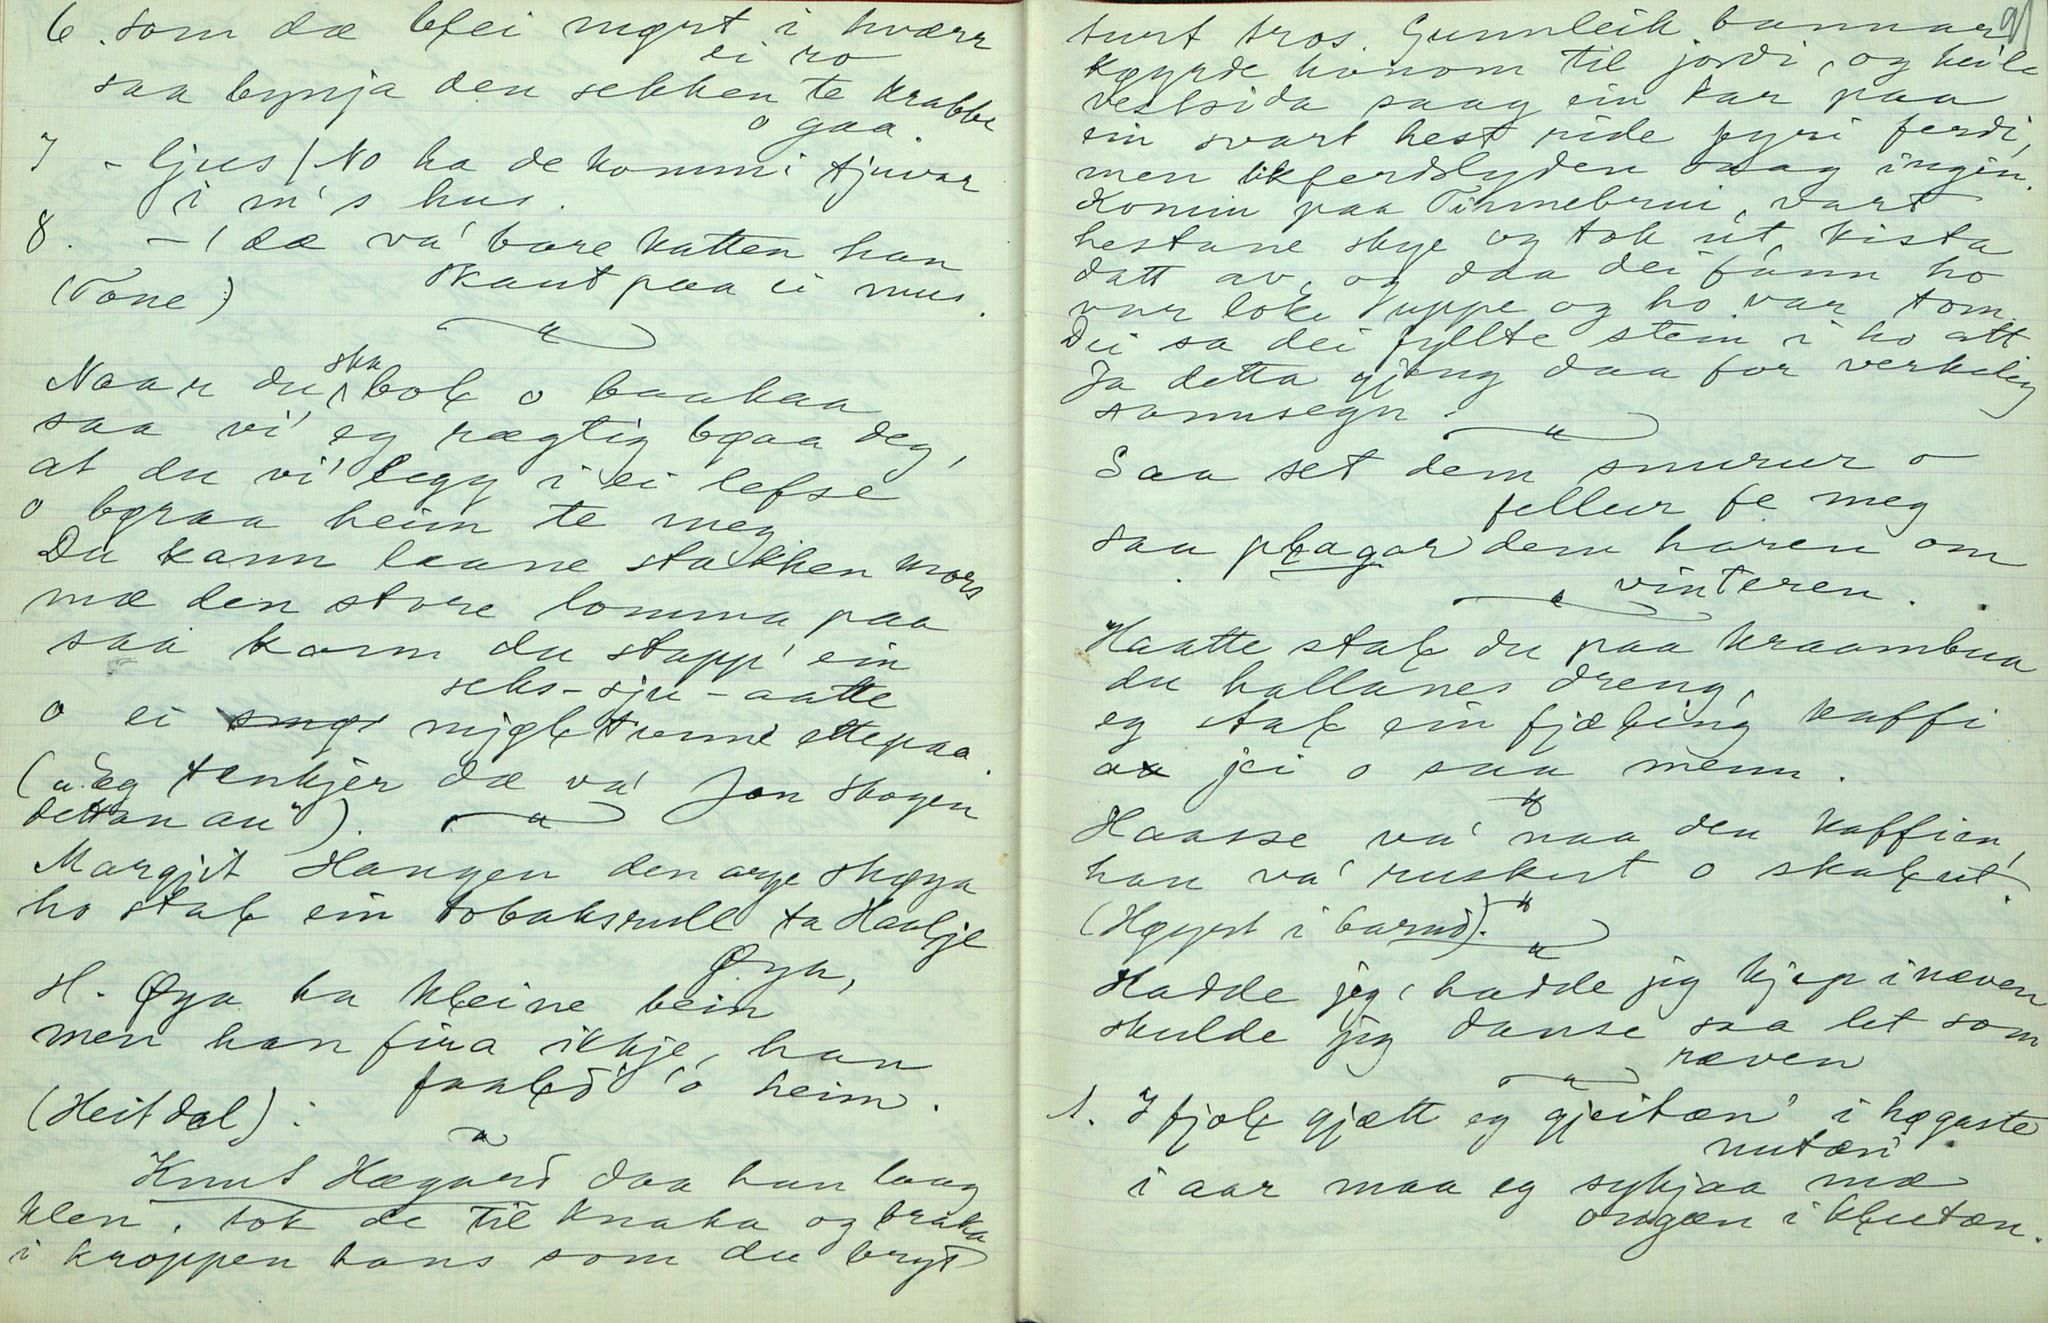 6. som dæ blei mørt i kværr
ei ro
saa bynja den sekken te krabbe
o gaa.
7 - ljus / No ha de kommi tjuvar
i m's hus.
8. - ( dæ va' bare katten han
(Tone) skaut paa ei mus.
Naar du ska bok o baakaa
saa vi' eg rægtig bøaa deg,
at du vi' legg i ei lefse
o børaa heim te meg
Du kann laane stakken mors
mæ den store lomma paa
saa kann du stapp' ein
seks-sju-aatte
o ei mjøltunne ettepaa.
("Eg tenkjer dæ va' Jon Skogen
dettan au").
Margjit Haugen den arge skøya
ho stal ein tobaksrull ta Haalje
Øya,
H. Øya ha kleine bein
men han fira ikkje, han
faaled' o heim.
(Heitdal):
Knut Hægard daa han laag
klen, tok de til knaka og braka
i kroppen hans som du bryt
91
turt tros. Gunnleik bannar
køyrde honom til jordi, og heile
vestsida saag ein kar paa
ein svart hest ride fyri ferdi,
men likferdslyden saag ingin.
Komin paa Tinnebrui, vart
hestane skye og tok ut, kista
datt av, og daa dei fann ho
var loke uppe og ho var tom.
Dei sa dei fyllte stein i ho att
Ja detta gjeng daa for verkeleg
sannsegn.
Saa set dem snurur o
fellur fe meg
saa plagar dem haren om
vinteren.
Haatte stal du paa kraambua
du hallanes dreng,
eg stal ein fjæling kaffi
av jei o saa menn.
Haasse va' naa den kaffien,
han va' ruskut o skalut.
(Høyrt i barnd).
Hadde jeg, hadde jeg kjep i næven
skulde jeg danse saa let som
ræven
1. I fjol gjætt eg gjeitæn' i høgaste
nutæn'
i aar maa eg sykjaa mæ
ongæn i klutæn.